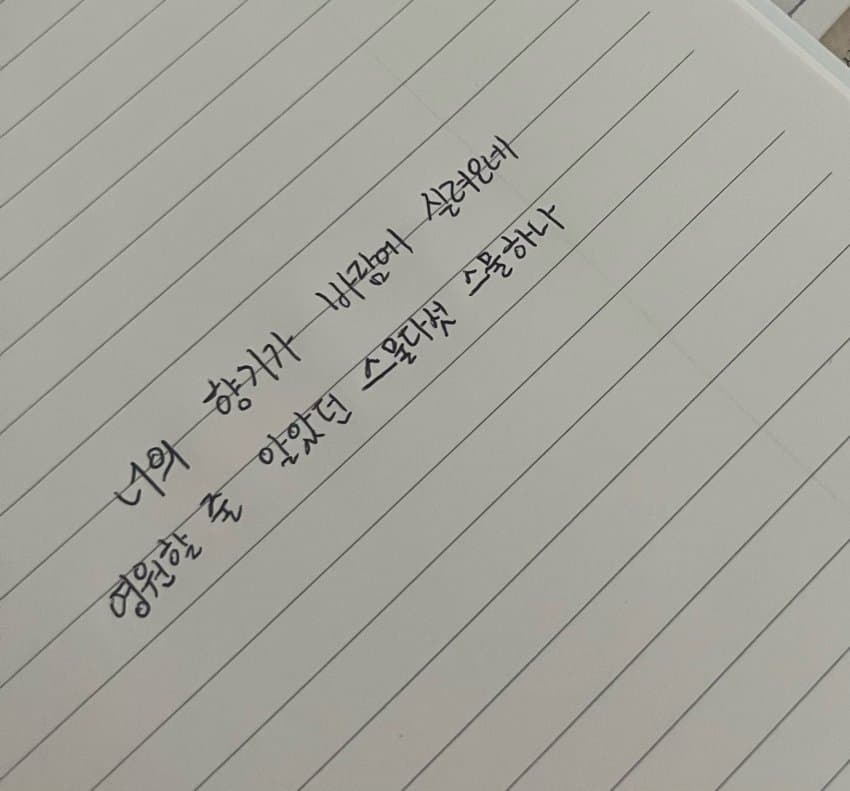 너의 향기가 바람에 실려오네
영원할 줄 알았던 스물다섯 스물하나